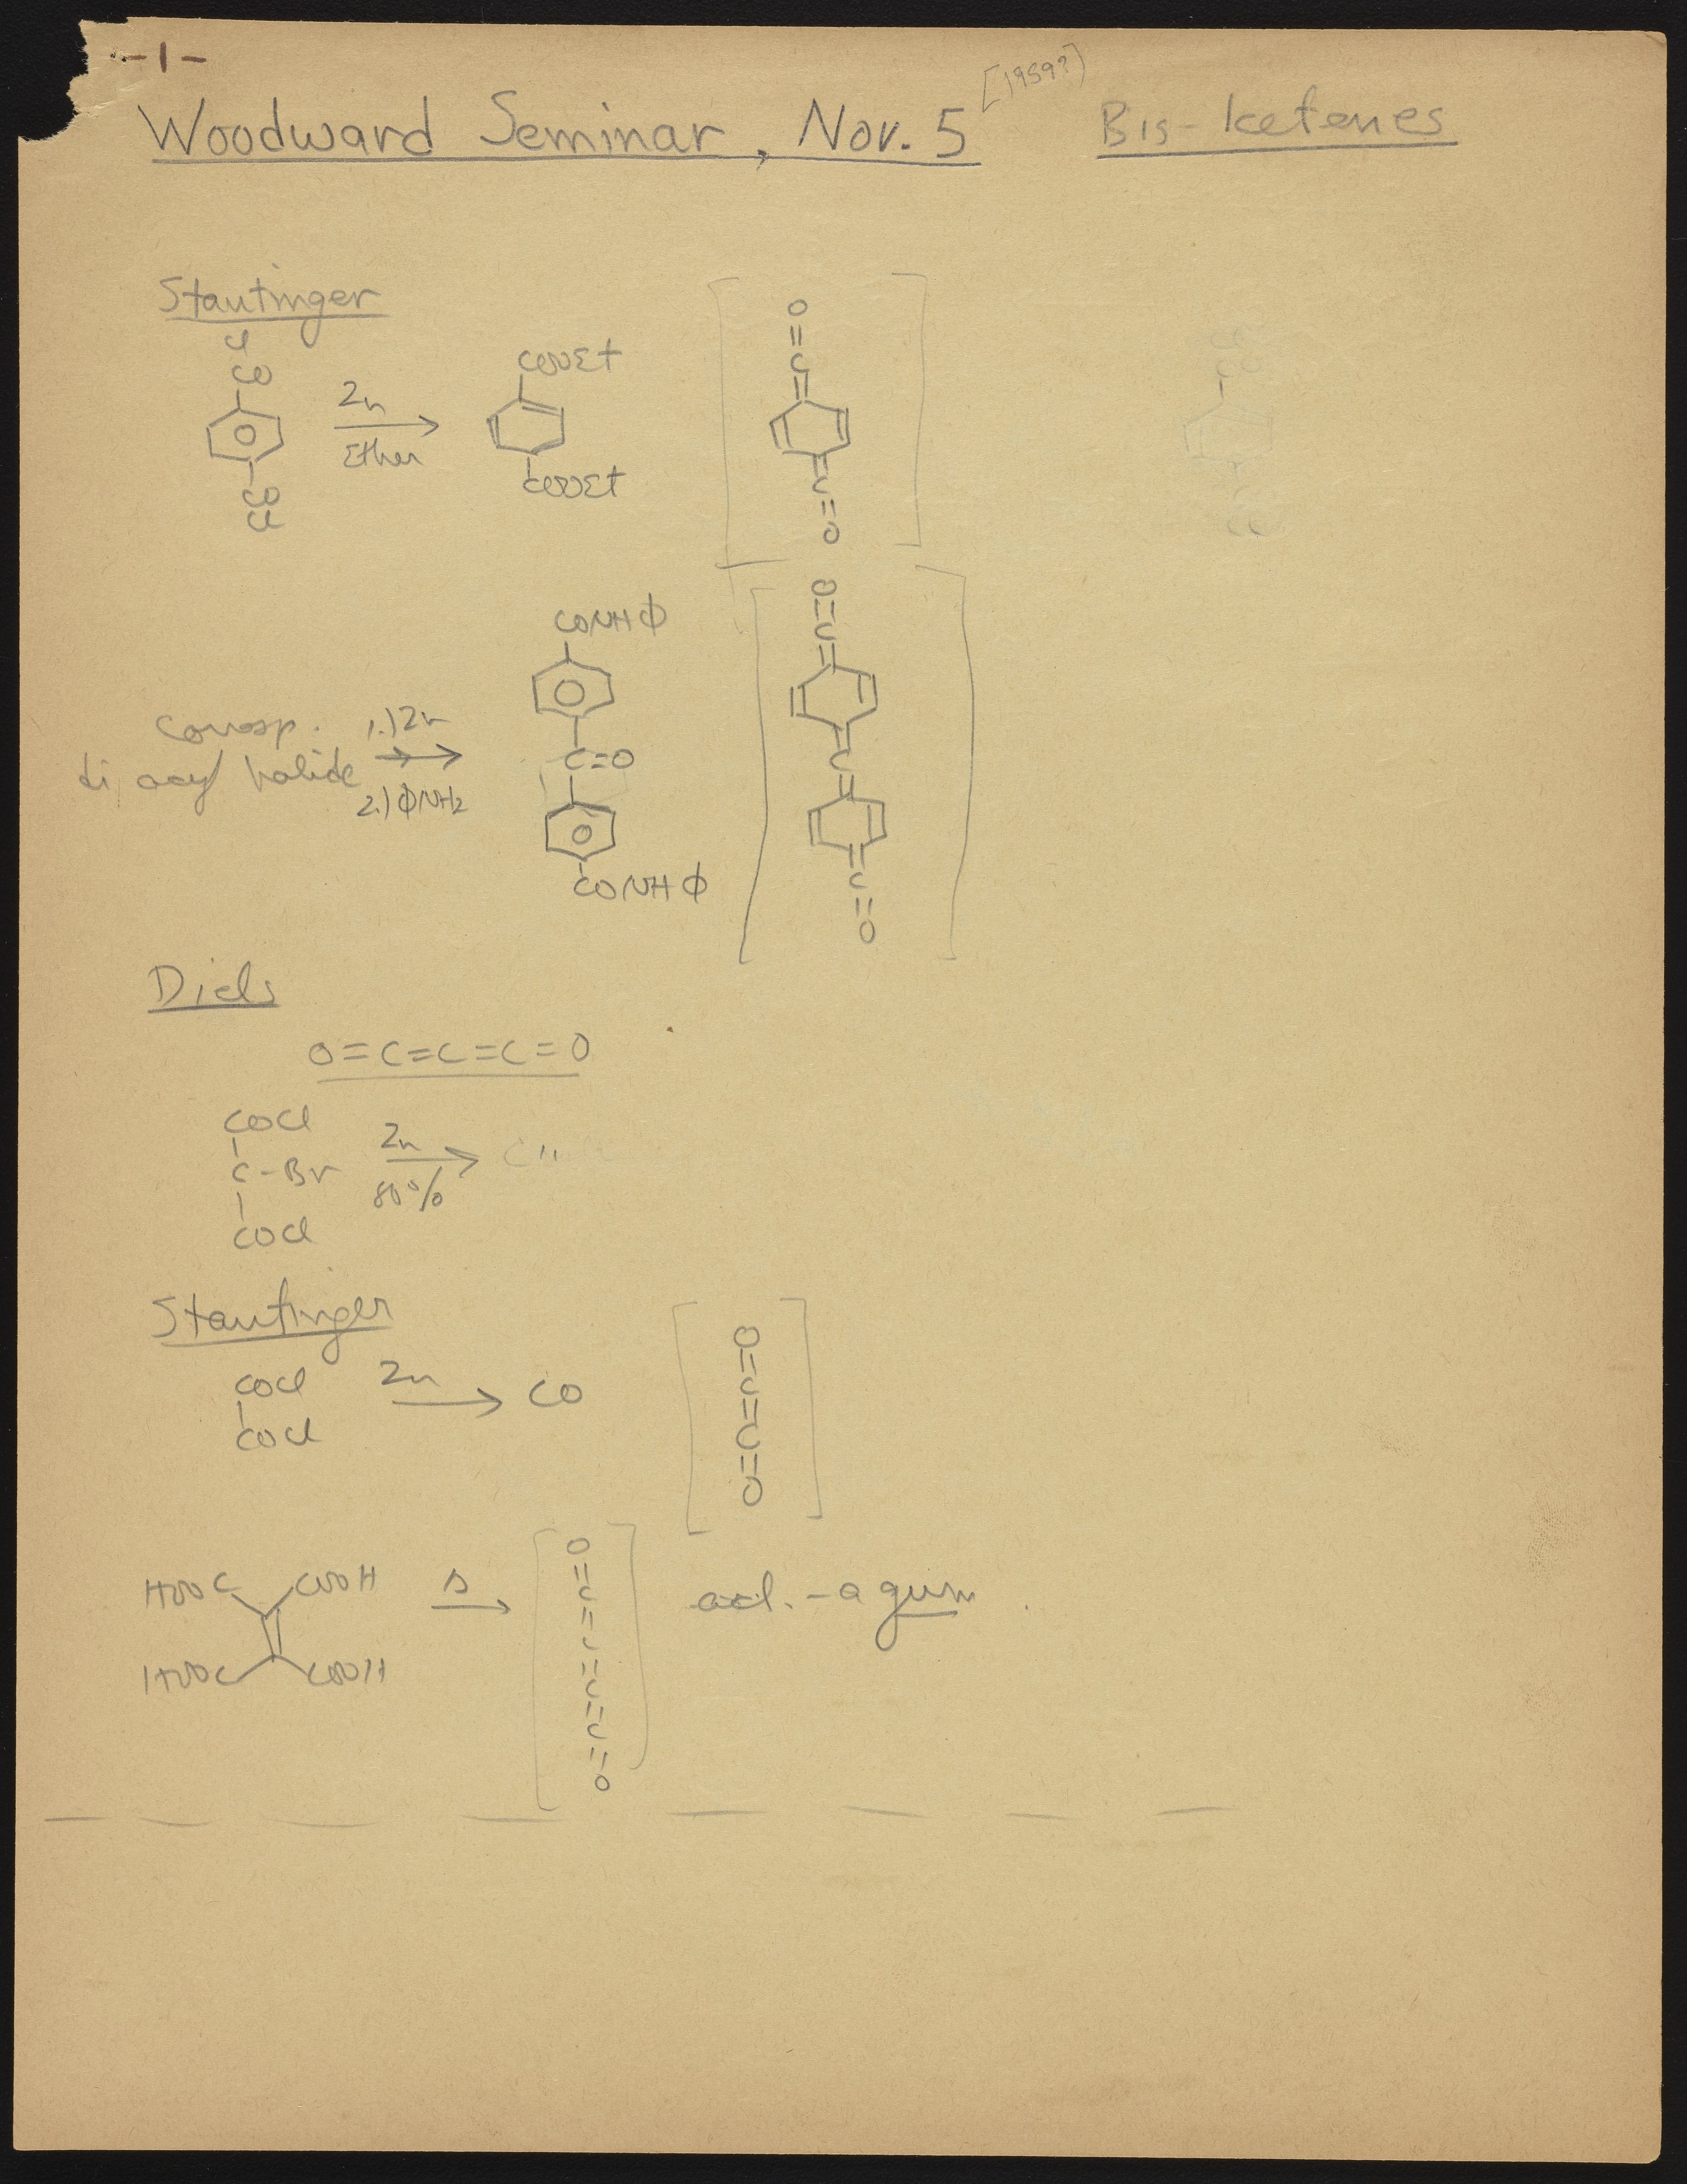 -1-
Woodward Seminar, Nov. 5 [1959?] Bis-ketenes
Stautinger
Cl
CO
CO
Cl
Zn
Ether
COOEt
COOEt
O=C= =C=O
CONHΦ
C=O
CONHΦ
corresp.
di acyl halide
1.) Zn
2.) ΦNH2
O=C= =C= =C=O
Diels
O=C=C=C=O
COCl
C-Br
COCl
Zn
80%
Stautinger
COCl
COCl
Zn
CO
O=C=C=O
HOOC COOH
HOOC COOH
Δ
O=C=C=C=C=O
acl. - a gum